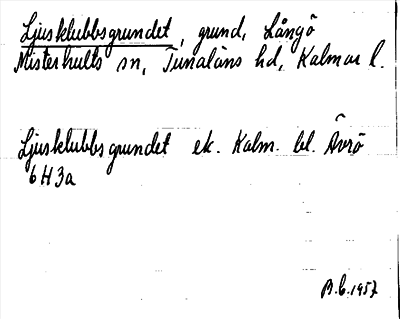 Ljusklubbsgrundet, grund, Långö
Misterhults sn, Tunaläns hd, Kalmar l.
Ljusklubbsgrundet ek. Kalm. bl. Ävrö
6H3a
B.C. 1957